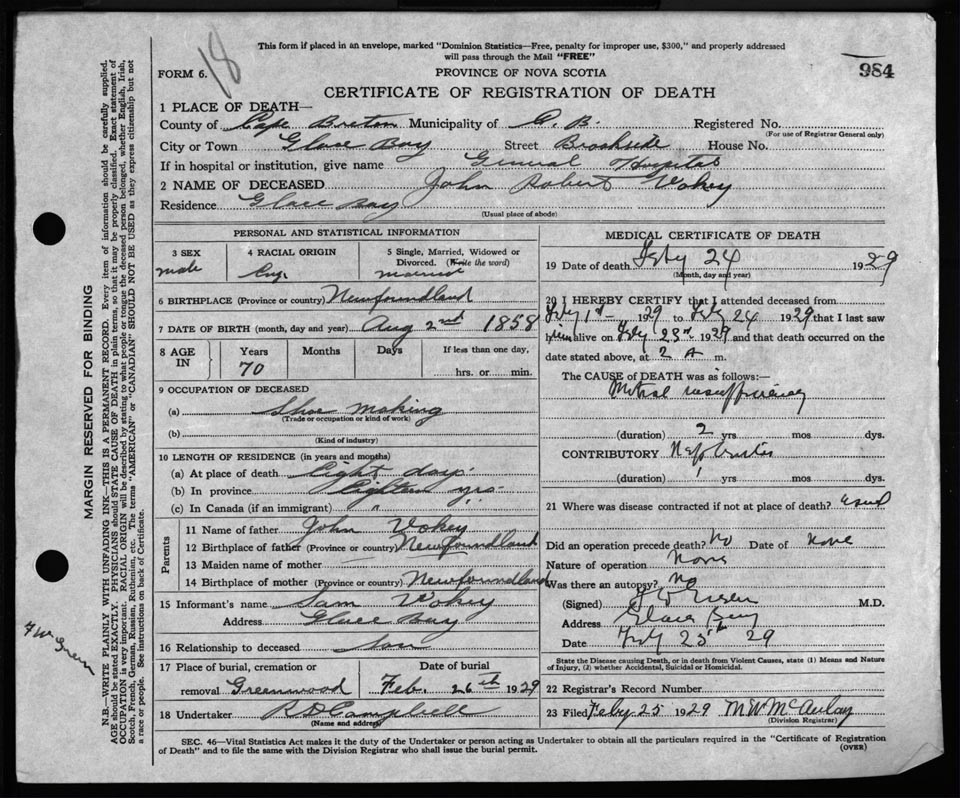 18
This form if placed in an envelope, marked "Dominion Statistics—Free, penalty for improper use, $300," and properly addressed
will pass through the Mail "FREE"
FORM 6.
PROVINCE OF NOVA SCOTIA
984
CERTIFICATE OF REGISTRATION OF DEATH
1 PLACE OF DEATH—
County of Cape Breton Municipality of C. B. Registered No.
(For use of Registrar General only)
City or Town Glace Bay Street Brookside House No.
If in hospital or institution, give name General Hospital
2 NAME OF DECEASED John Robert Vokey
Residence Glace Bay
(Usual place of abode)
PERSONAL AND STATISTICAL INFORMATION
3 SEX 4 RACIAL ORIGIN 5 Single, Married, Widowed or
Divorced. (Write the word)
male Eng. married
6 BIRTHPLACE (Province or country) Newfoundland
7 DATE OF BIRTH (month, day and year) Aug 2nd 1858
8 AGE IN Years Months Days If less than one day,
70 hrs. or min.
9 OCCUPATION OF DECEASED
(a) Shoe making
(Trade or occupation or kind of work)
(b)
(Kind of industry)
10 LENGTH OF RESIDENCE (in years and months)
(a) At place of death Eight days
(b) In province Eighteen yrs.
(c) In Canada (if an immigrant) " "
Parents
11 Name of father John Vokey
12 Birthplace of father (Province or country) Newfoundland
13 Maiden name of mother
14 Birthplace of mother (Province or country) Newfoundland
15 Informant's name Sam Vokey
Address Glace Bay
16 Relationship to deceased Son
17 Place of burial, cremation or Date of burial
removal Greenwood Feb. 26th 1929
18 Undertaker Campbell
(Name and address)
MEDICAL CERTIFICATE OF DEATH
19 Date of death Feby 24 1929
(Month, day and year)
20 I HEREBY CERTIFY that I attended deceased from
Feby 1st 1929 to Feby 24 1929 that I last saw
him alive on Feby 23rd 1929 and that death occurred on the
date stated above, at 2 A m.
The CAUSE of DEATH was as follows:—
Mitral insufficiency
(duration) 2 yrs mos dys.
CONTRIBUTORY Nephritis
(duration) 1 yrs mos dys.
21 Where was disease contracted if not at place of death?
Did an operation precede death? No Date of None
Nature of operation None
Was there an autopsy? no
(Signed) M.D.
Address Glace Bay
Date Feby 25th 29
State the Disease causing Death, or in death from Violent Causes, state (1) Means and Nature
of Injury, (2) whether Accidental, Suicidal or Homicidal.
22 Registrar's Record Number
23 Filed Feby 25 1929 M W McAulay
(Division Registrar)
SEC. 46—Vital Statistics Act makes it the duty of the Undertaker or person acting as Undertaker to obtain all the particulars required in the "Certificate of Registration
of Death" and to file the same with the Division Registrar who shall issue the burial permit.
(OVER)
MARGIN RESERVED FOR BINDING
N.B.—WRITE PLAINLY WITH UNFADING INK—THIS IS A PERMANENT RECORD. Every item of information should be carefully supplied.
AGE should be stated EXACTLY. PHYSICIANS should STATE CAUSE OF DEATH in plain terms, so that it may be properly classified. Exact statement of
OCCUPATION is very important. RACIAL ORIGIN will be described by stating to what people or tongue the deceased person belonged, whether English, Irish,
Scotch, French, German, Russian, Ruthenian, etc. The terms "AMERICAN" or "CANADIAN" SHOULD NOT BE USED as they express citizenship but not
a race or people. See instructions on back of Certificate.